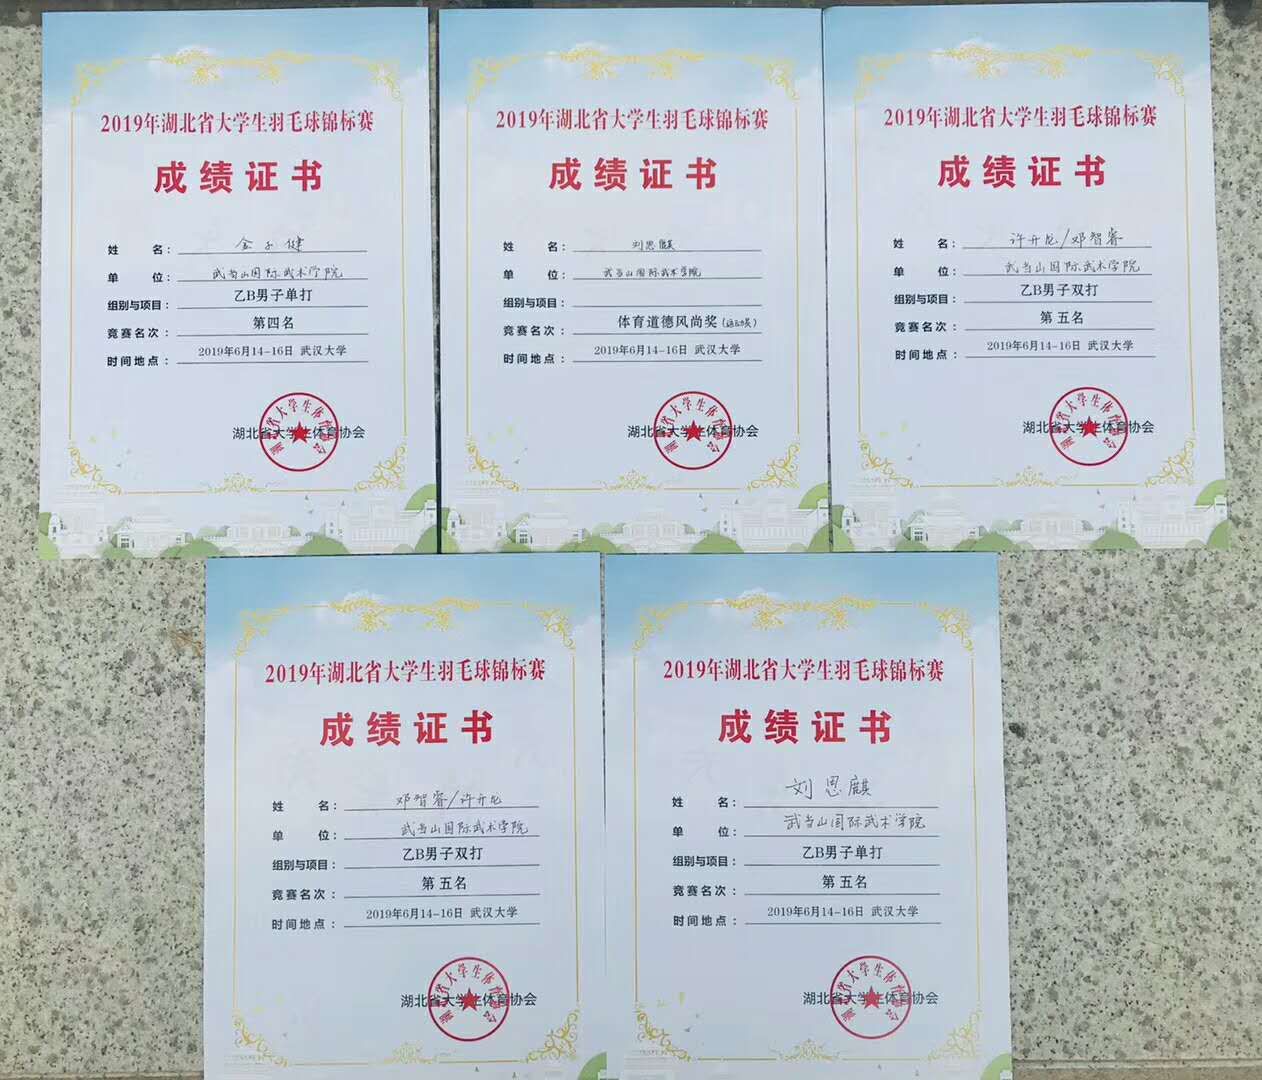 2019年湖北省大学生羽毛球锦标赛
成绩证书
姓 名：金子健
单 位：武当山国际武术学院
组别与项目：乙B男子单打
竞赛名次：第四名
时间地点：2019年6月14-16日 武汉大学
湖北省大学生体育协会
2019年湖北省大学生羽毛球锦标赛
成绩证书
姓 名：刘思麒
单 位：武当山国际武术学院
组别与项目：
竞赛名次：体育道德风尚奖(运动员)
时间地点：2019年6月14-16日 武汉大学
湖北省大学生体育协会
2019年湖北省大学生羽毛球锦标赛
成绩证书
姓 名：许开龙/邓智睿
单 位：武当山国际武术学院
组别与项目：乙B男子双打
竞赛名次：第五名
时间地点：2019年6月14-16日 武汉大学
湖北省大学生体育协会
2019年湖北省大学生羽毛球锦标赛
成绩证书
姓 名：邓智睿/许开龙
单 位：武当山国际武术学院
组别与项目：乙B男子双打
竞赛名次：第五名
时间地点：2019年6月14-16日 武汉大学
湖北省大学生体育协会
2019年湖北省大学生羽毛球锦标赛
成绩证书
姓 名：刘思麒
单 位：武当山国际武术学院
组别与项目：乙B男子单打
竞赛名次：第五名
时间地点：2019年6月14-16日 武汉大学
湖北省大学生体育协会